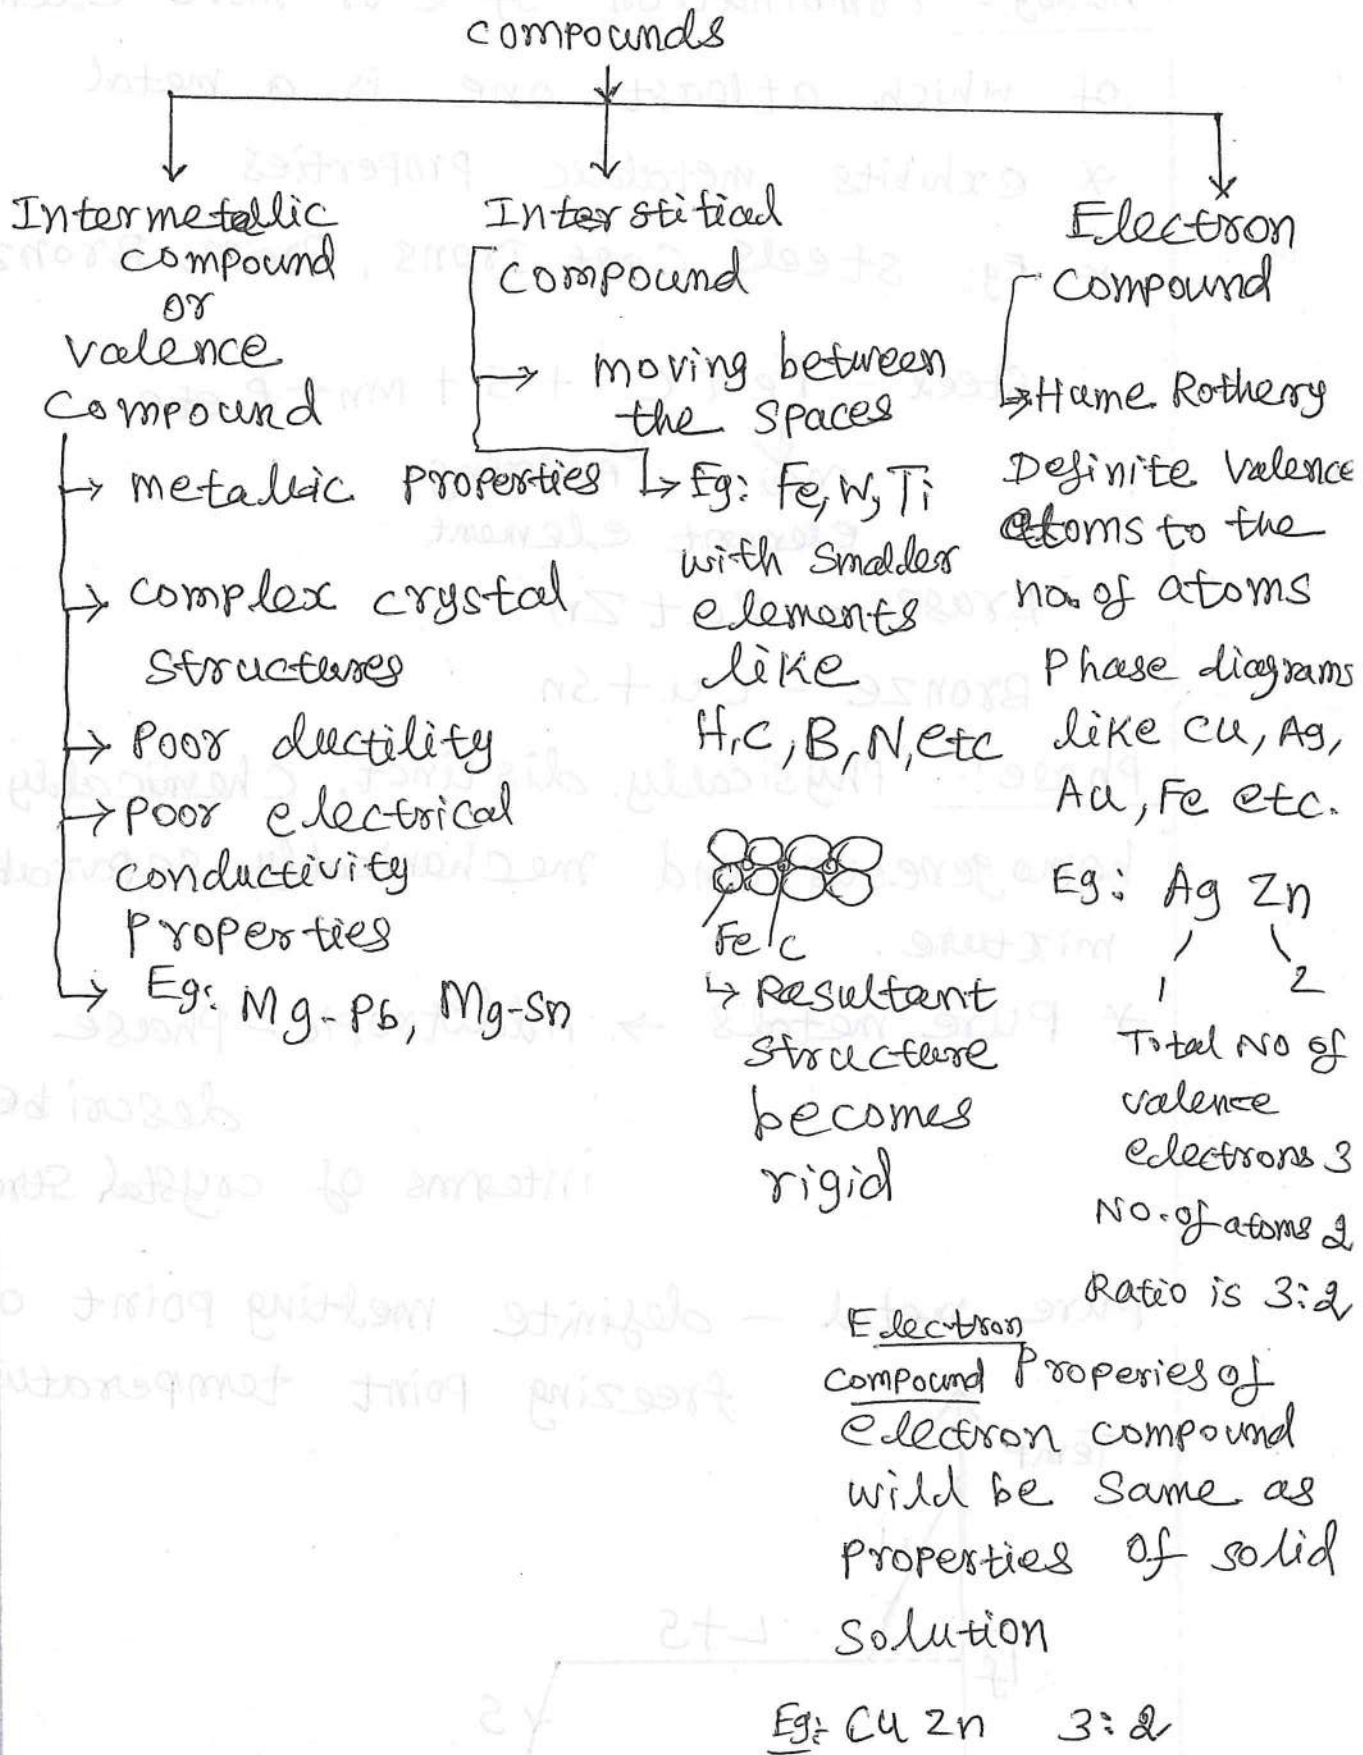 compounds
Intermetallic
compound
or
valence
compound
→ metallic properties
→ complex crystal
structures
→ Poor ductility
→ Poor electrical
conductivity
properties
→ Eg: Mg-Pb, Mg-Sn
Interstitial
compound
→ moving between
the spaces
↳ Eg: Fe, W, Ti
with smaller
elements
like
H, C, B, N, etc
Fe C
↳ Resultant
structure
becomes
rigid
Electron
compound
↳ Hume Rothery
Definite valence
atoms to the
no. of atoms
Phase diagrams
like Cu, Ag,
Au, Fe etc.
Eg: Ag Zn
1 2
Total No of
valence
electrons 3
No. of atoms 2
Ratio is 3:2
Electron
compound Properies of
electron compound
will be same as
properties of solid
solution
Eg: Cu Zn 3:2